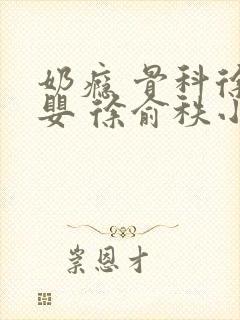 奶瘾 骨科徐
婴 徐俞秩小
崇恩才